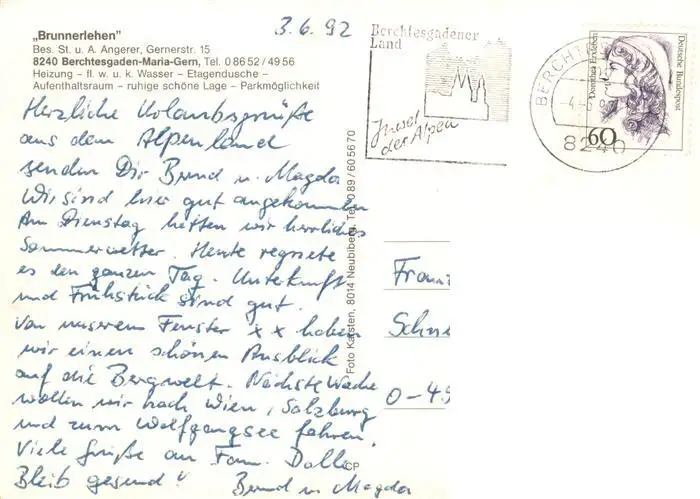 3.6.92
„Brunnerlehen"
Bes. St. u. A. Angerer, Gernerstr. 15
8240 Berchtesgaden-Maria-Gern, Tel. 0 86 52 / 49 56
Heizung – fl. w. u. k. Wasser – Etagendusche –
Aufenthaltsraum – ruhige schöne Lage – Parkmöglichkeit
Herzliche Urlaubsgrüße
aus dem Alpenland
senden Dir Bernd u. Magda
Wir sind hier gut angekommen
Am Dienstag hatten wir herrliches
Sommerwetter. Heute regnete
es den ganzen Tag. Unterkunft
und Frühstück sind gut.
Von unserem Fenster xx haben
wir einen schönen Ausblick
auf die Bergwelt. Nächste Woche
wollen wir nach Wien, Salzburg
und zum Wolfgangsee fahren.
Viele Grüße an Fam.
Bleib gesund!
Bernd u. Magda
Foto Karsten, 8014 Neubiberg, Tel. 0 89 / 60 56 70
CP
Berchtesgadener
Land
Insel
der Alpen
BERCHT
-4.-6.
8240
Dorothea Erxleben
Deutsche Bundespost
60
Schn
O-4